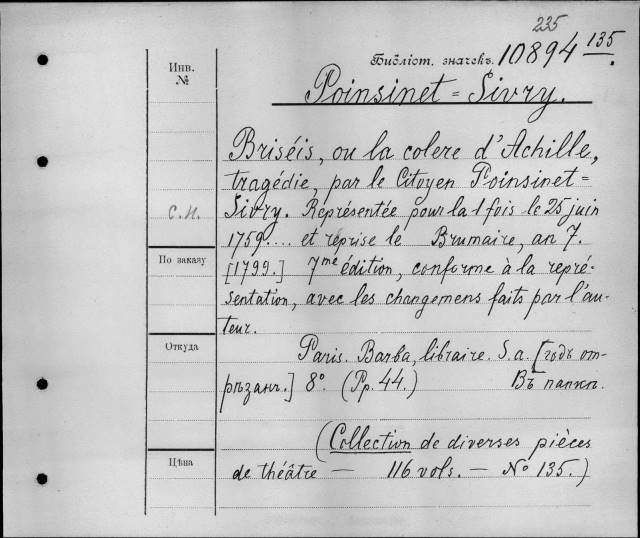 235
Библіот. значекъ. 10894 135.
Инв. №
Poinsinet=Sivry.
Briséis, ou la colere d'Achille,
tragédie, par le Citoyen Poinsinet=
с.н.
Sivry. Représentée pour la 1 fois le 25 juin
1759.... et reprise le Brumaire, an 7.
По заказу
[1799.] 7me édition, conforme à la repré-
sentation, avec les changemens faits par l'au-
teur.
Откуда
Paris. Barba, libraire. S.a. [годъ от-
рѣзанъ.] 8°. (Pp. 44.) Въ папкѣ.
(Collection de diverses pièces
Цѣна
de théâtre — 116 vols. — № 135.)